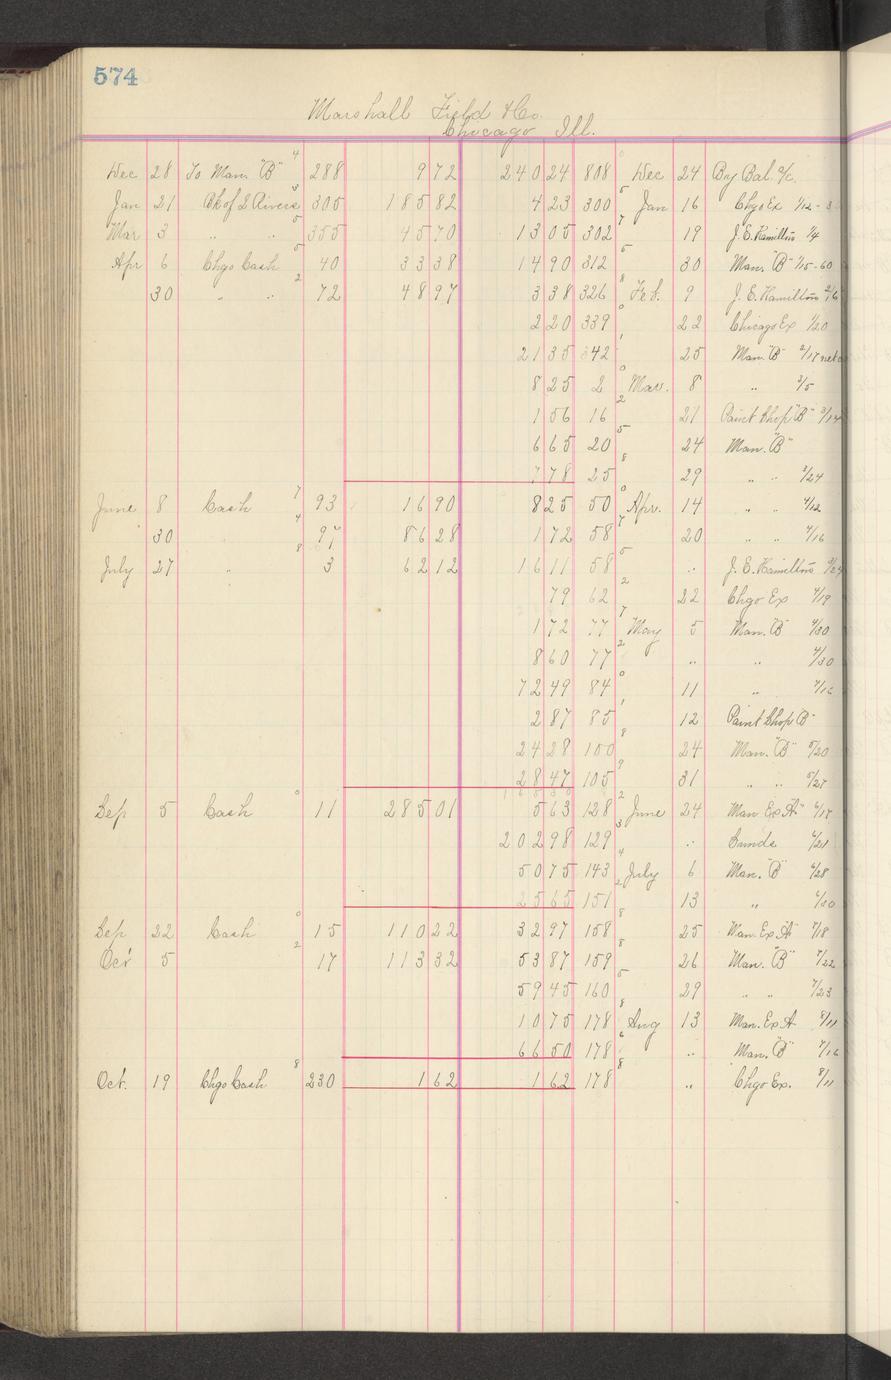 574
Marshall Field & Co.
Chicago Ill.
Dec 28 To Man. "B" 4 288 9 72 240 24 808 0 Dec 24 By Bal. a/c.
Jan 21 Bk of 2 Rivers 3 305 185 82 4 23 300 5 Jan 16 Chgo Ex 1/12 - 3
Mar 3 " " 5 355 45 70 13 05 302 7 19 J. E. Hamilton 1/4
Apr 6 Chgo Cash 5 40 33 38 14 90 312 5 30 Man. "B" 1/15 - 60
30 " " 2 72 48 97 3 38 326 8 Feb. 9 J. E. Hamilton 2/6
2 20 339 0 22 Chicago Ex 1/20
21 35 342 1 25 Man. "B" 2/17 net
8 25 2 0 Mar. 8 " 3/5
1 56 16 2 21 Paint Shop "B" 3/14
6 65 20 5 24 Man. "B"
7 78 25 8 29 " " 3/24
June 8 Cash 7 93 16 90 8 25 50 0 Apr. 14 " " 4/12
30 4 97 86 28 1 72 58 7 20 " " 4/16
July 27 " 8 3 62 12 16 11 58 5 " J. E. Hamilton
79 62 2 22 Chgo Ex 4/19
1 72 77 7 May 5 Man. "B" 4/30
8 60 77 2 " " 4/30
72 49 84 0 11 " 4/16
2 87 85 1 12 Paint Shop B"
24 28 100 8 24 Man. "B" 5/20
28 47 105 9 31 " " 5/27
Sep 5 Cash 0 11 285 01 5 63 128 2 June 24 Man Ex "A" 6/17
202 98 129 3 " Sunds 6/21
50 75 143 4 July 6 Man. "B" 6/28
25 65 151 2 13 " 6/30
Sep 22 Cash 0 15 110 22 32 97 158 8 25 Man. Ex "A" 7/18
Oct 5 2 17 113 32 53 87 159 8 26 Man. "B" 7/22
59 45 160 5 29 " " 7/23
10 75 178 8 Aug 13 Man. Ex A 8/11
66 50 178 6 " Man. "B" 7/16
Oct. 19 Chgo Cash 8 230 1 62 1 62 178 8 " Chgo Ex. 8/11